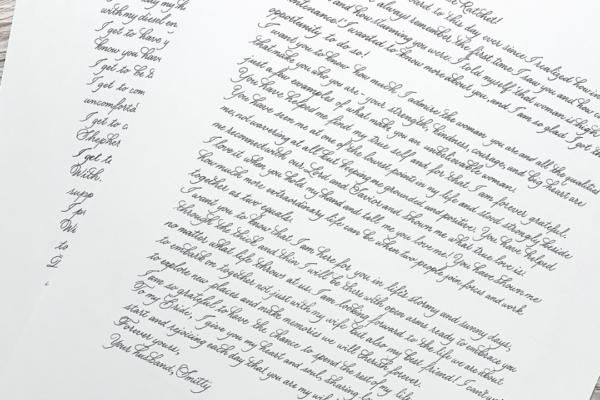 with my diesel en
I get to have y
know you hav
I get to be a
I get to com
uncomforta
I get to c
Shepher
I get to
With.
supp
to
Ratchet!
to this day ever since I realized how
always remember the first time I saw you and how
and how stunning you were. I told myself that woman is high
maintenance! I wanted to know more about you, and I am so glad I got the
opportunity to do so!
I want you to know how much I admire the woman you are and all the qualities
that make you who you are - your strength, kindness, courage, and big heart are
just a few examples of what make you an unbelievable woman.
You have helped me find my true self and for that I am forever grateful.
You have seen me at one of the lowest points in my life and stood strongly beside
me, not wavering at all but keeping me grounded and positive. You have helped
me reconnect with our Lord and Savior and shown me what true love is!
I love it when you hold my hand and tell me you love me! You have shown me
how much more extraordinary life can be when two people join forces and work
together as two equals.
I want you to know that I am here for you in life's stormy and sunny days,
through the thick and thin I will be there with open arms ready to embrace you
no matter what life throws at us. I am looking forward to the life we are about
to embark on together not just with my wife but also my best friend! I can't
to explore new places and make memories we will cherish forever.
I am so grateful to have the chance to spend the rest of my life
To my Bride, I give you my heart and soul, sharing
start and rejoicing each day that you are my wife
Forever yours,
Your husband, Smitty